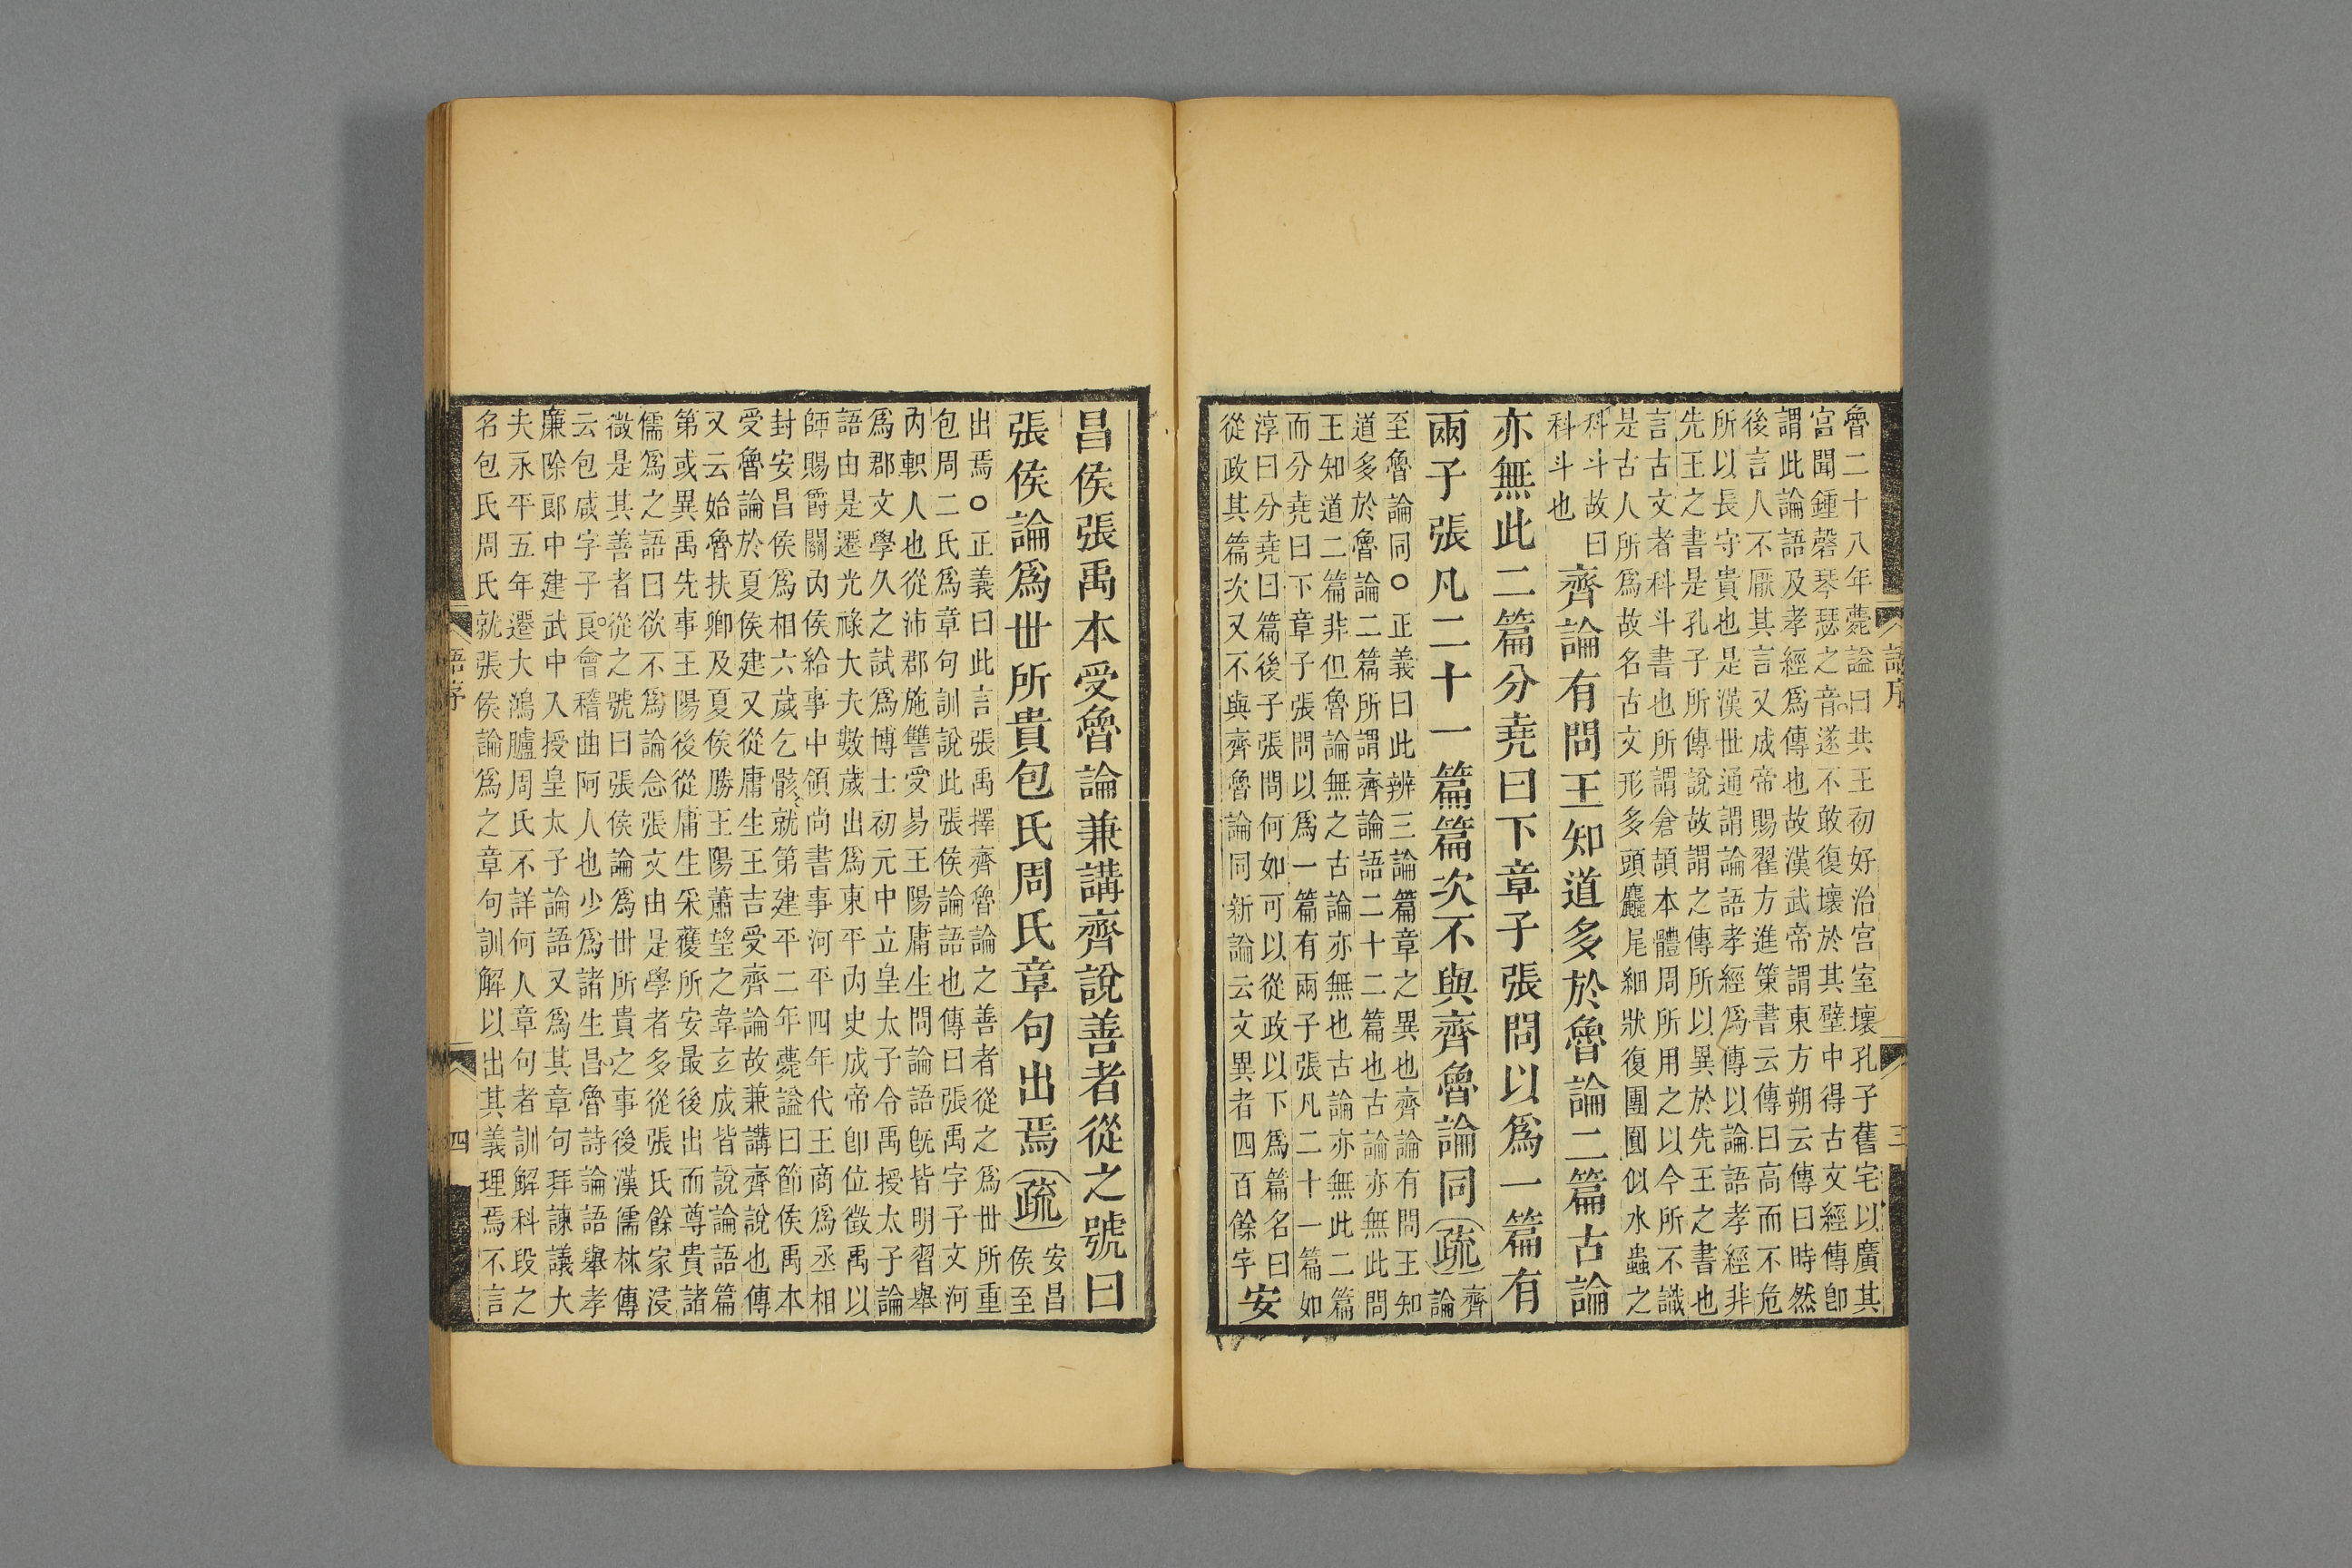 魯二十八年薨謚曰共王初好治宮室壞孔子舊宅以廣其
宮聞鍾磬琴瑟之音遂不敢復壞於其壁中得古文經傳卽
謂此論語及孝經爲傳也故漢武帝謂東方朔云傳曰時然
後言人不厭其言又成帝賜翟方進策書云傳曰高而不危
所以長守貴也是漢世通謂論語孝經爲傳以論語孝經非
先王之書是孔子所傳說故謂之傳所以異於先王之書也
言古文者科斗書也所謂倉頡本體周所用之以今所不識
是古人所爲故名古文形多頭麤尾細狀復團圓似水蟲之
科斗故曰
科斗也
齊論有問王知道多於魯論二篇古論
亦無此二篇分堯曰下章子張問以爲一篇有
兩子張凡二十一篇篇次不與齊魯論同
疏
齊
論
至魯論同○正義曰此辨三論篇章之異也齊論有問王知
道多於魯論二篇所謂齊論語二十二篇也古論亦無此問
王知道二篇非但魯論無之古論亦無也古論亦無此二篇
而分堯曰下章子張問以爲一篇有兩子張凡二十一篇如
淳曰分堯曰篇後子張問何如可以從政以下爲篇名曰
從政其篇次又不與齊魯論同新論云文異者四百餘字
安
語序
三
昌侯張禹本受魯論兼講齊說善者從之號曰
張侯論爲世所貴包氏周氏章句出焉
疏
安昌
侯至
出焉○正義曰此言張禹擇齊魯論之善者從之爲世所重
包周二氏爲章句訓說此張侯論語也傳曰張禹字子文河
內軹人也從沛郡施讐受易王陽庸生問論語旣皆明習舉
爲郡文學久之試爲博士初元中立皇太子令禹授太子論
語由是遷光祿大夫數歲出爲東平內史成帝卽位徵禹以
師賜爵關內侯給事中領尚書事河平四年代王商爲丞相
封安昌侯爲相六歲乞骸就第建平二年薨謚曰節侯禹本
受魯論於夏侯建又從庸生王吉受齊論故兼講齊說也傳
又云始魯扶卿及夏侯勝王陽蕭望之韋玄成皆說論語篇
第或異禹先事王陽後從庸生采獲所安最後出而尊貴諸
儒爲之語曰欲不爲論念張文由是學者多從張氏餘家浸
微是其善者從之號曰張侯論爲世所貴之事後漢儒林傳
云包咸字子良會稽曲阿人也少爲諸生昌魯詩論語舉孝
廉除郎中建武中入授皇太子論語又爲其章句拜諫議大
夫永平五年遷大鴻臚周氏不詳何人章句者訓解科段之
名包氏周氏就張侯論爲之章句訓解以出其義理焉不言
語序
四